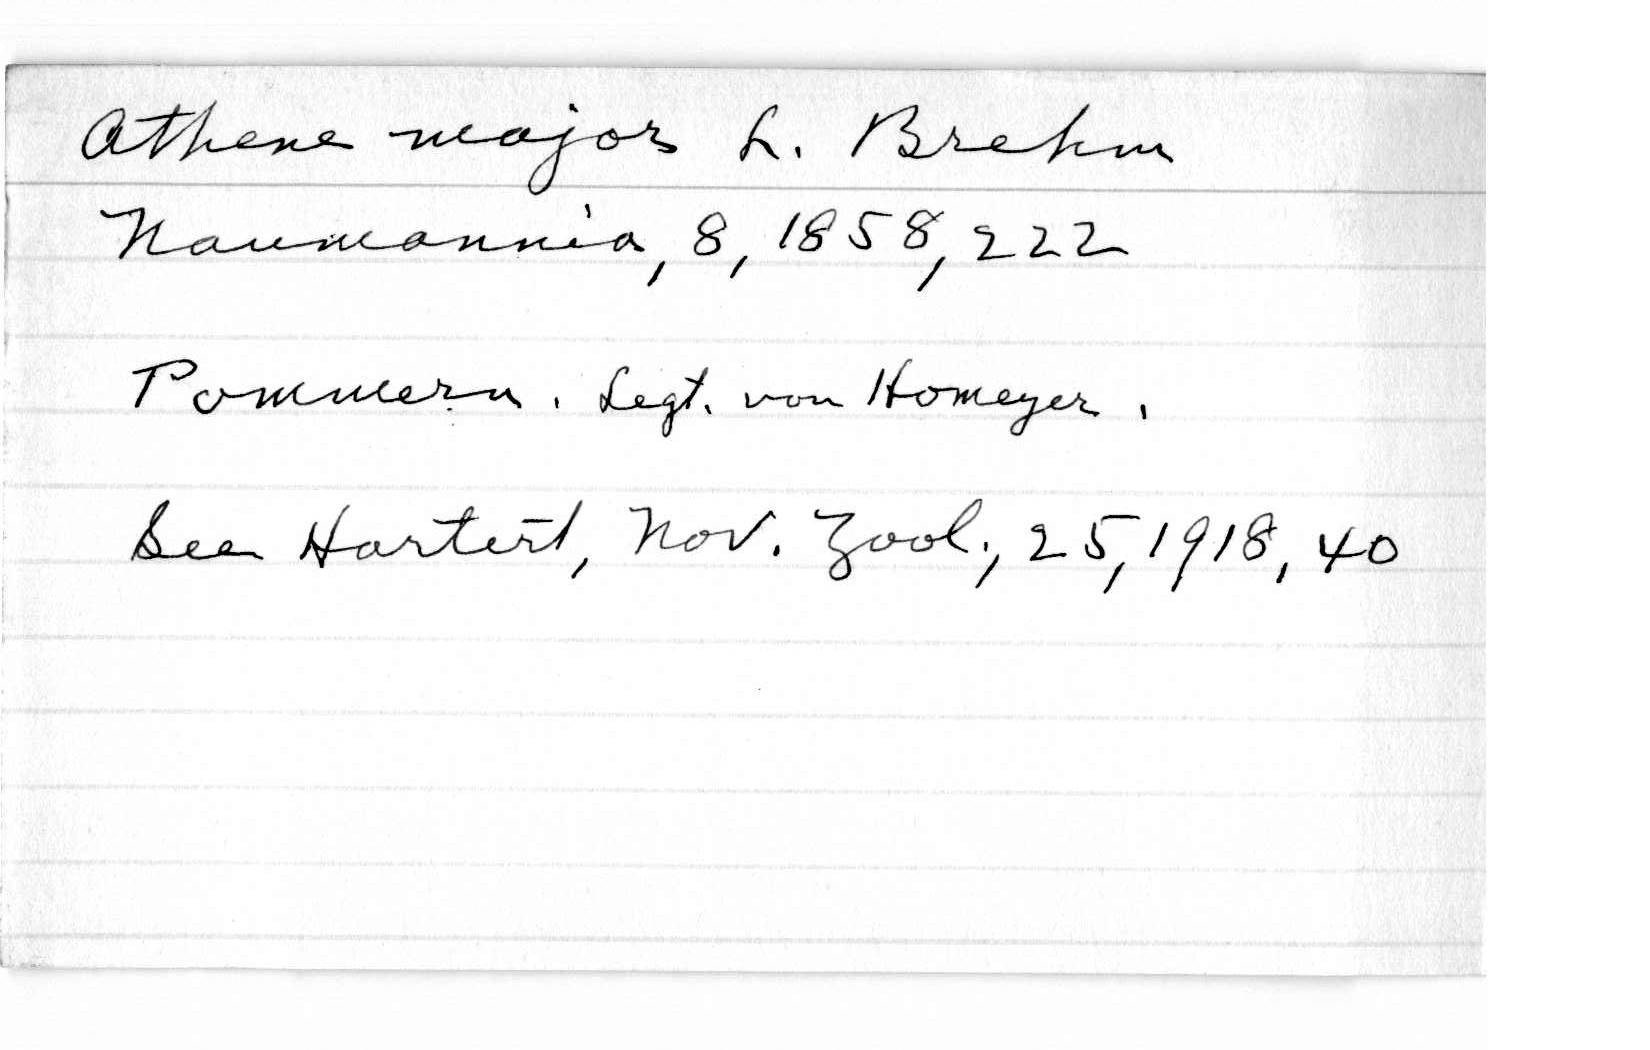 Athene major L. Brehm
Naumannia, 8, 1858, 222
Pommern. Legt. von Homeyer.
See Hartert, Nov. Zool., 25, 1918, 40